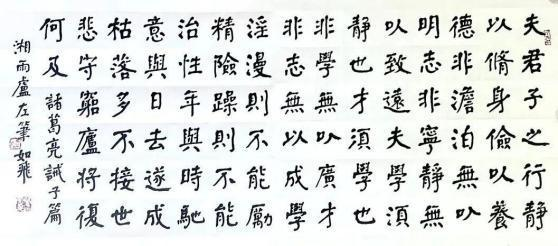 夫君子之行静
以脩身儉以養
德非澹泊無以
明志非寧靜無
以致遠夫學須
靜也才須學也
非學無以廣才
非志無以成學
淫漫則不能勵
精險躁則不能
治性年與時馳
意與日去遂成
枯落多不接世
悲守窮廬將復
何及 諸葛亮誡子篇
湘雨廬左筆如飛